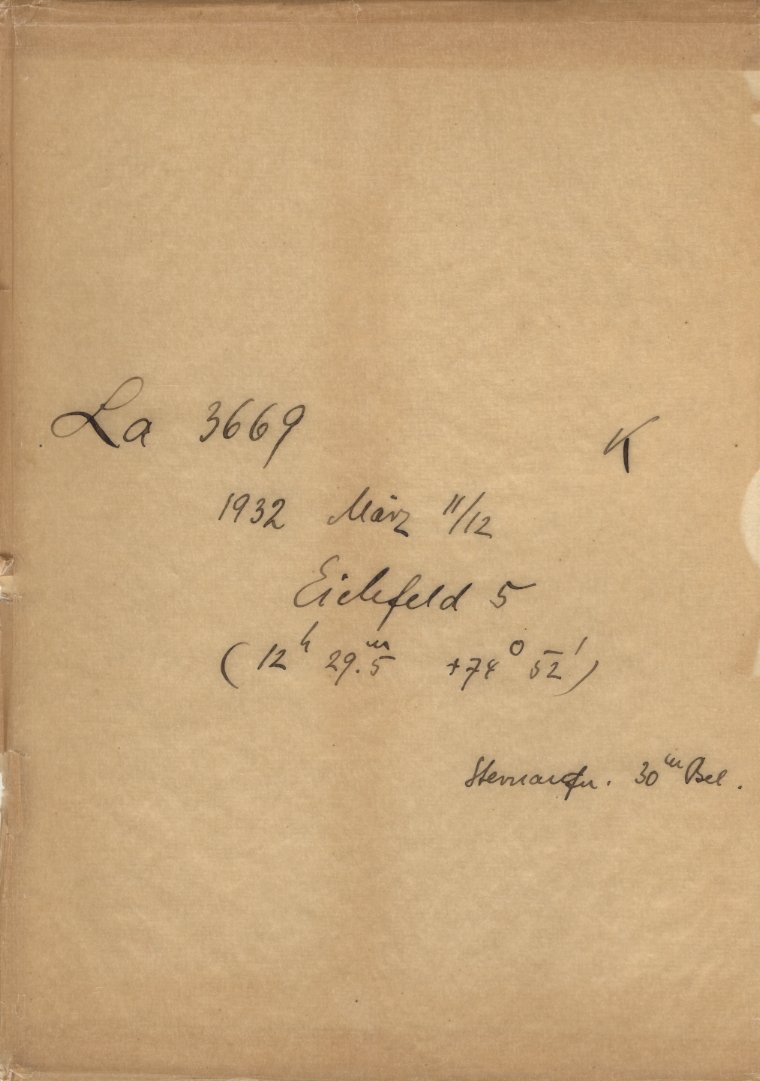 La 3669 K
1932 März 11/12
Eichfeld 5
(12h 29.m5 +74° 52')
Sternaufn. 30m Bel.